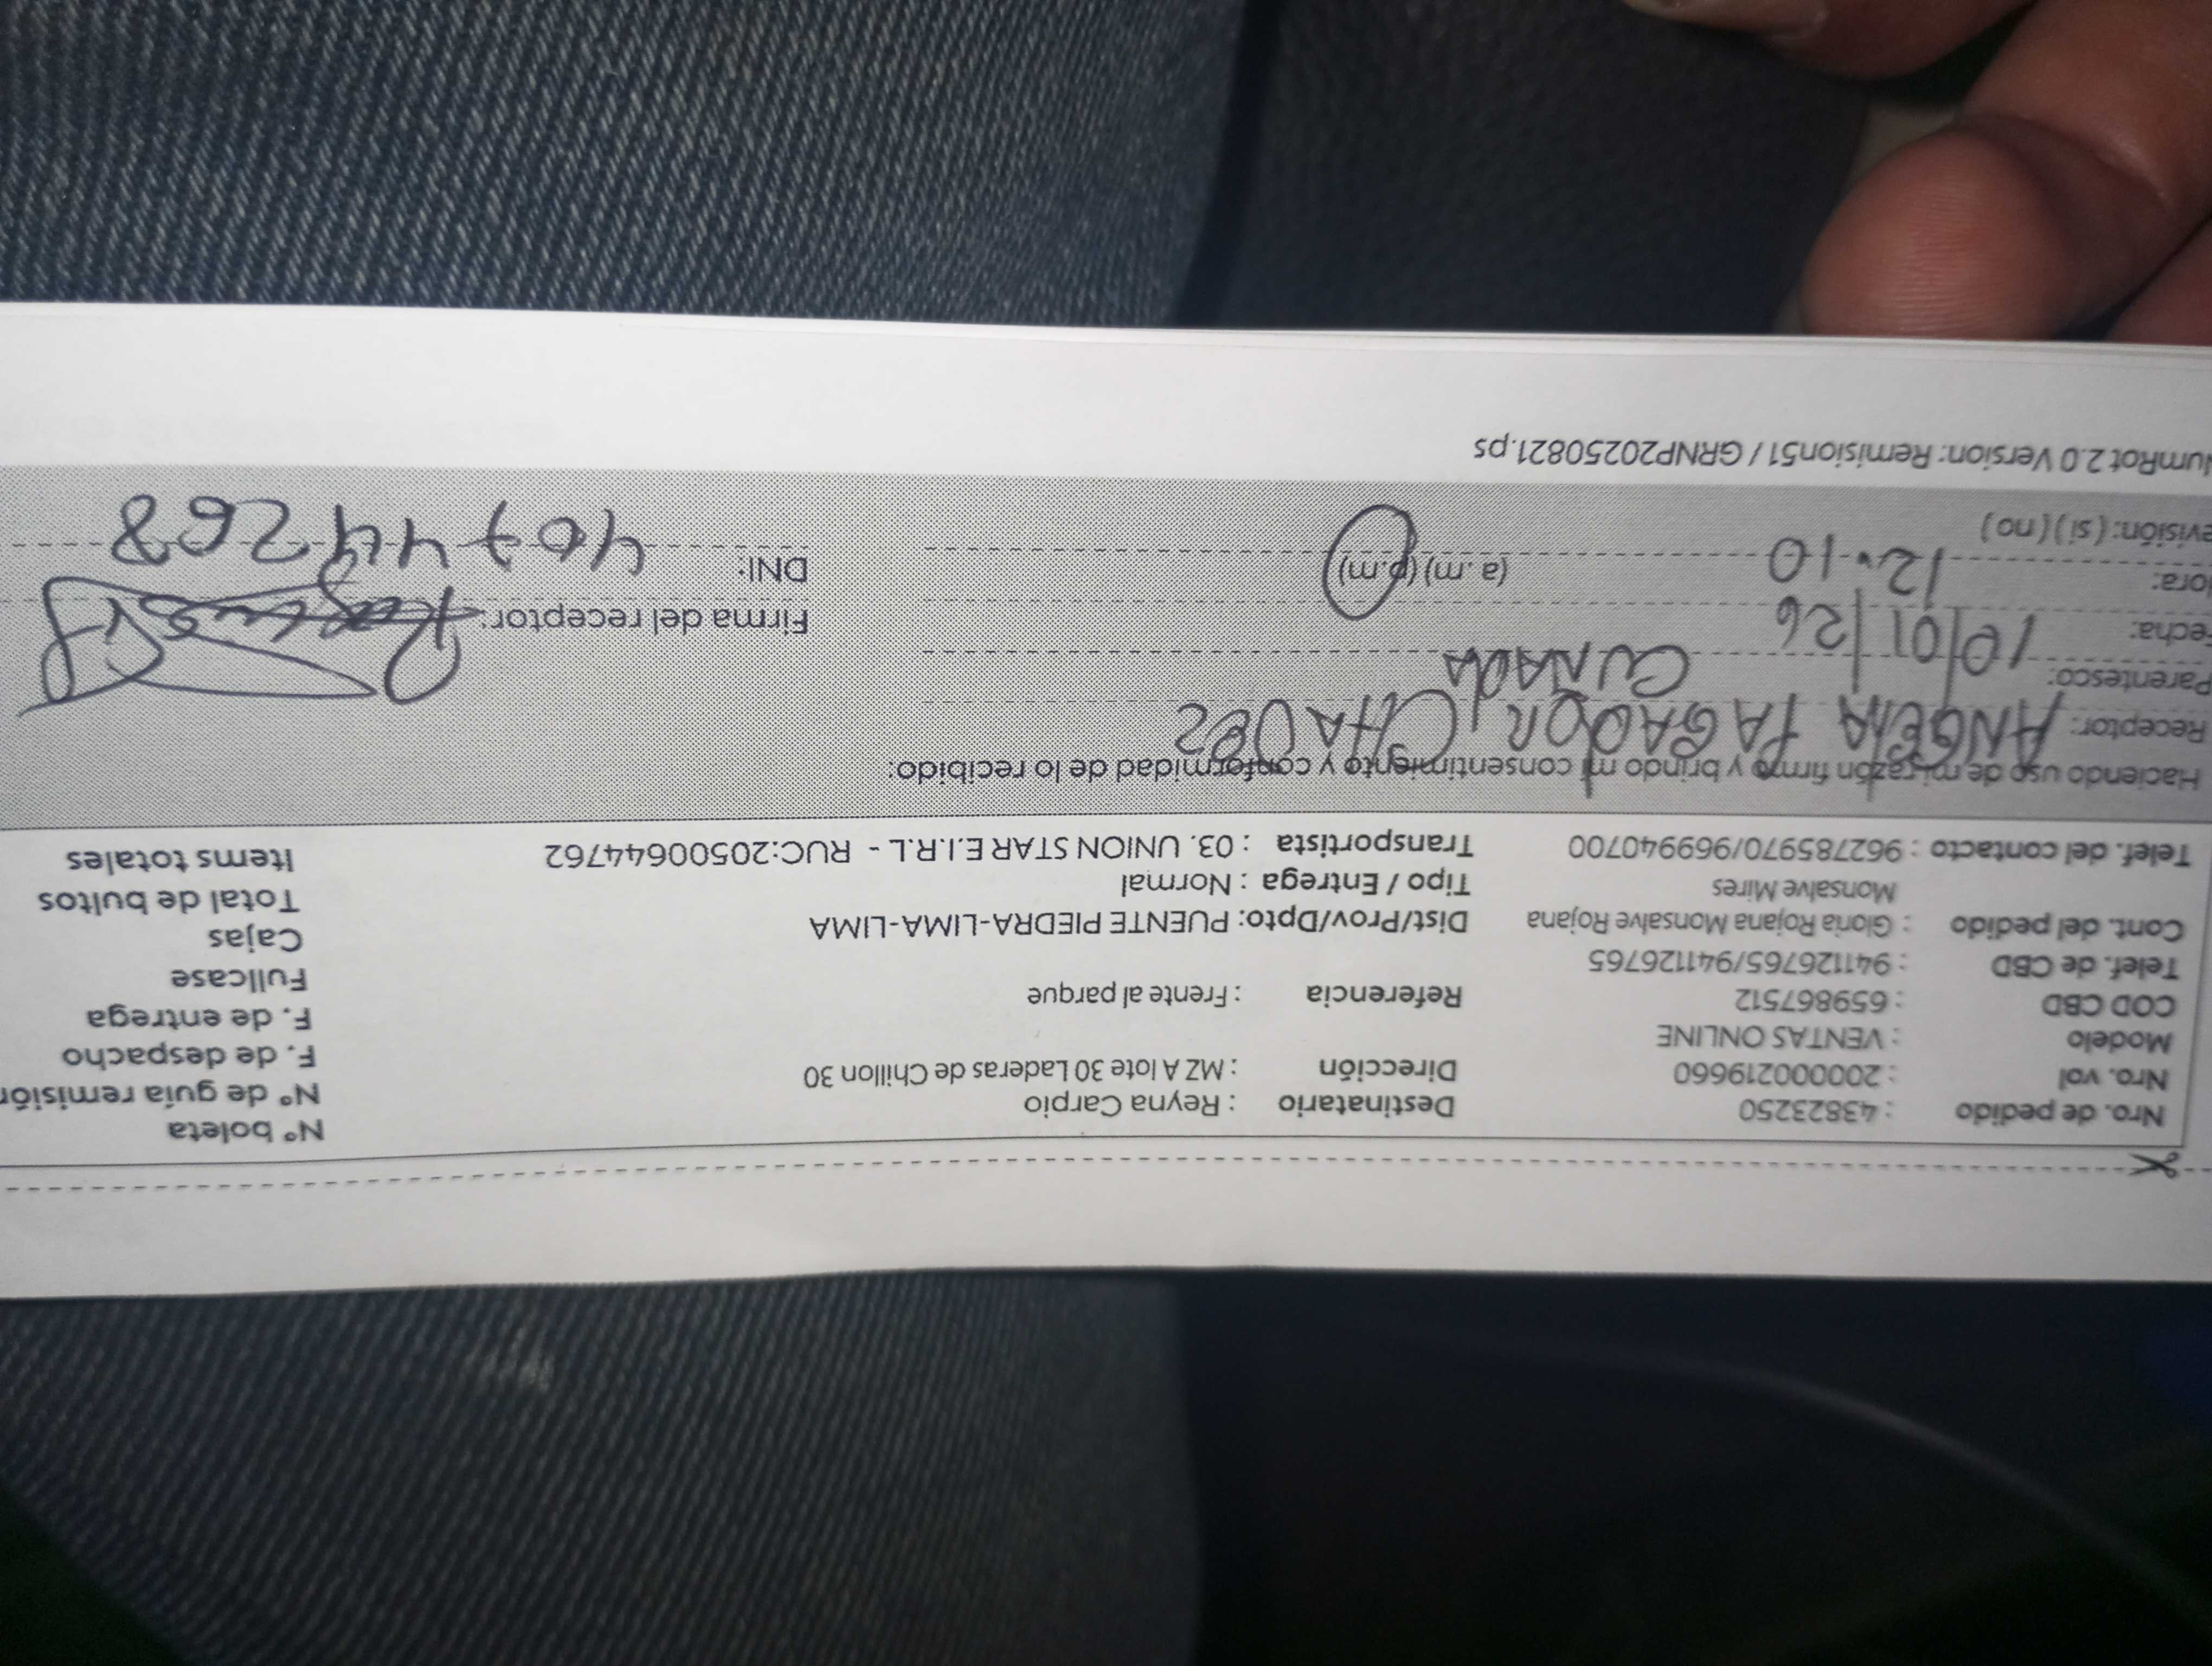 Nro. de pedido : 43823250 Destinatario : Reyna Carpio N° boleta
Nro. vol : 2000000219660 Dirección : MZ A lote 30 Laderas de Chillon 30 N° de guía remisión
Modelo : VENTAS ONLINE F. de despacho
COD CBD : 659867512 Referencia : Frente al parque F. de entrega
Telef. de CBD : 941126765/941126765 Fullcase
Cont. del pedido : Gloria Rojana Monsalve Rojana Dist/Prov/Dpto: PUENTE PIEDRA-LIMA-LIMA Cajas
Monsalve Mires Tipo / Entrega : Normal Total de bultos
Telef. del contacto : 962785970/969940700 Transportista : 03. UNION STAR E.I.R.L - RUC:20500644762 Items totales
Haciendo uso de mi razón firmo y brindo mi consentimiento y conformidad de lo recibido:
Receptor: ANGELA PAGADOR CHAVEZ
Parentesco: CUNADA
Fecha: 10/01/26 Firma del receptor:
Hora: 12:10 (a.m) (p.m) DNI: 40744268
evisión: (si) (no)
NumRot 2.0 Version: Remision51 / GRNP20250821.ps